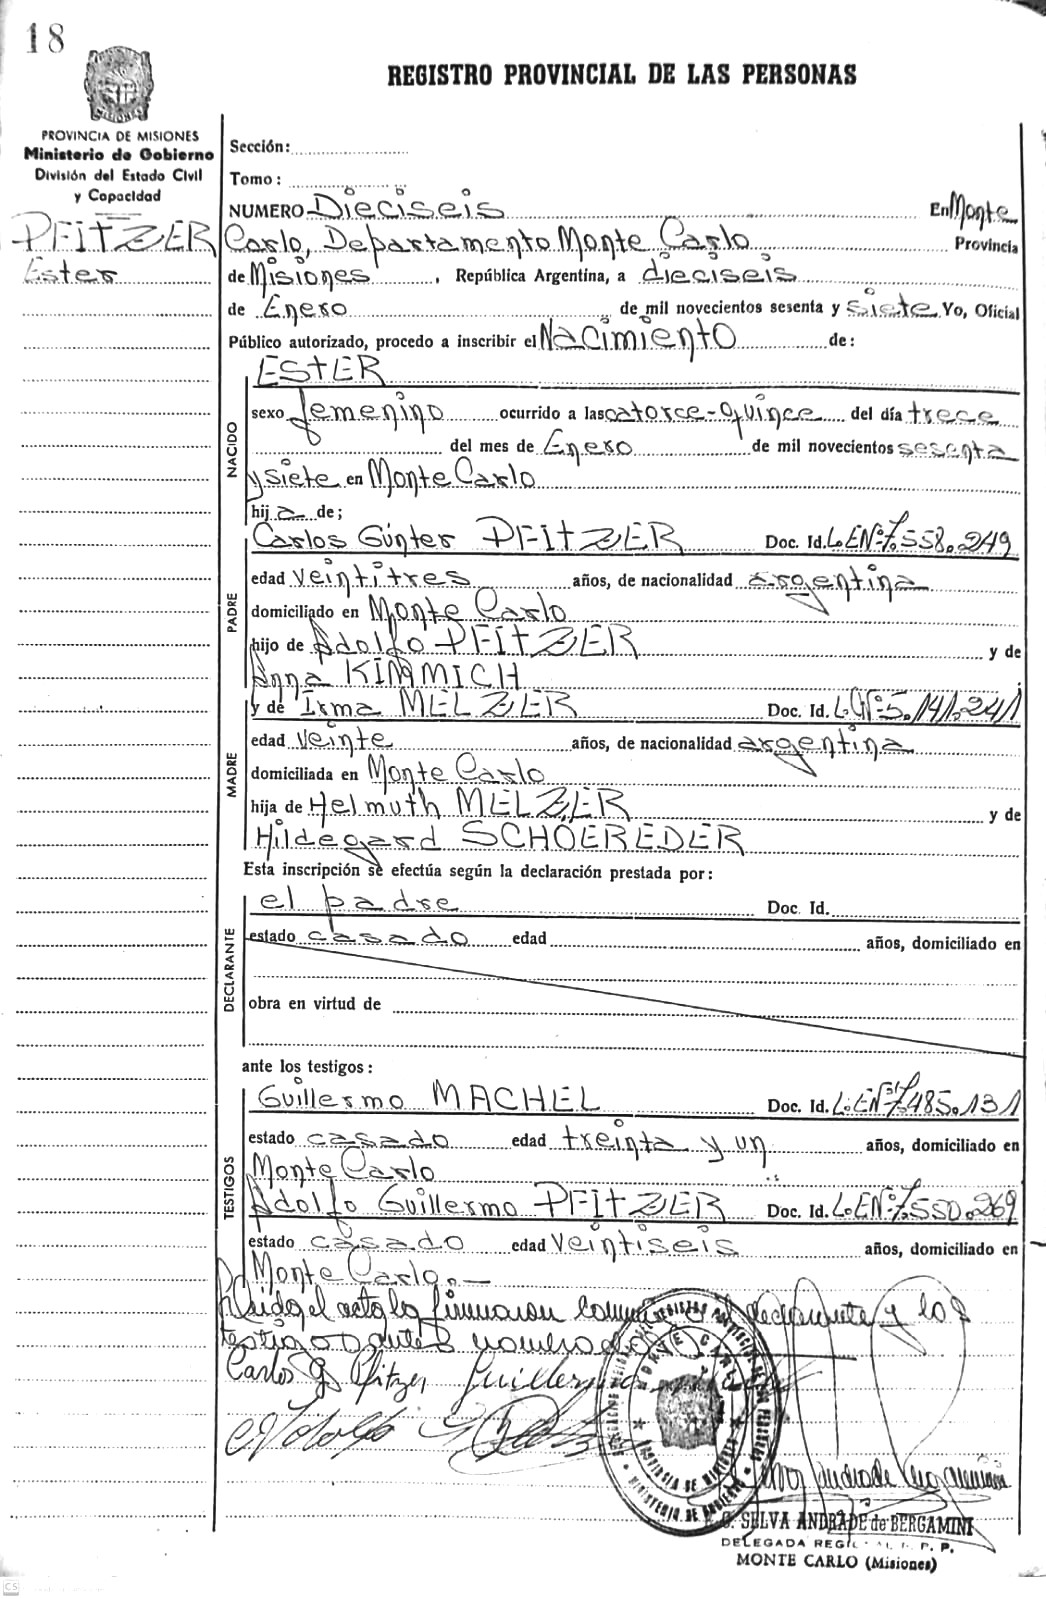 18
REGISTRO PROVINCIAL DE LAS PERSONAS
PROVINCIA DE MISIONES
Ministerio de Gobierno
División del Estado Civil
y Capacidad
PFITZER
Ester
Sección:
Tomo:
NUMERO Dieciseis En Monte
Carlo, Departamento Monte Carlo Provincia
de Misiones, República Argentina, a dieciseis
de Enero de mil novecientos sesenta y siete Yo, Oficial
Público autorizado, procedo a inscribir el Nacimiento de:
ESTER
NACIDO
sexo femenino ocurrido a las catorce-quince del día trece
del mes de Enero de mil novecientos sesenta
y siete en Monte Carlo
hija de;
Carlos Günter PFITZER Doc. Id. L.EN:7.558.249
PADRE
edad veintitres años, de nacionalidad argentina
domiciliado en Monte Carlo
hijo de Adolfo PFITZER y de
Anna KIMMICH
y de Irma MELZER Doc. Id. L.CN:5.141.241
MADRE
edad veinte años, de nacionalidad argentina
domiciliada en Monte Carlo
hija de Helmuth MELZER y de
Hildegard SCHOEREDER
Esta inscripción se efectúa según la declaración prestada por:
DECLARANTE
el padre Doc. Id.
estado casado edad años, domiciliado en
obra en virtud de
ante los testigos:
TESTIGOS
Guillermo MACHEL Doc. Id. L.EN:7.485.131
estado casado edad treinta y un años, domiciliado en
Monte Carlo
Adolfo Guillermo PFITZER Doc. Id. L.EN:7.550.269
estado casado edad veintiseis años, domiciliado en
Monte Carlo.—
Leida el acta la firmaron conmigo el declarante y los
testigos antes nombrados
Carlos G. Pfitzer Guillermo
Adolfo
PROVINCIA DE MISIONES
MINISTERIO DE GOBIERNO
Selva Andrade Bergamini
SELVA ANDRADE de BERGAMINI
DELEGADA REG. R. P. P.
MONTE CARLO (Misiones)
CS